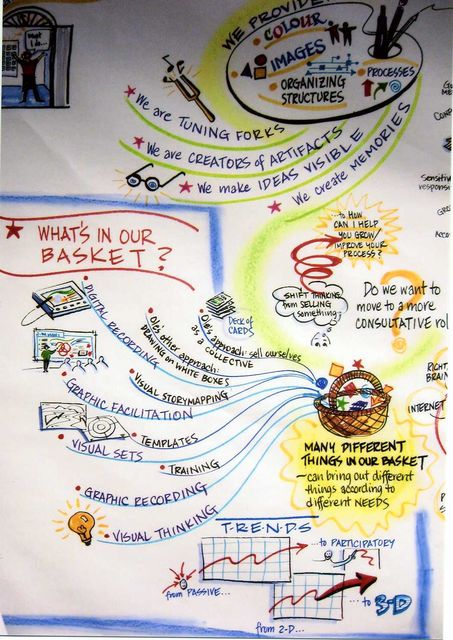 What I do...
WE PROVIDE
• COLOUR
• IMAGES
• ORGANIZING STRUCTURES
• PROCESSES
★ We are TUNING FORKS
★ We are CREATORS of ARTIFACTS
★ We make IDEAS VISIBLE
★ We create MEMORIES
Sensitiv
responsi
★ WHAT'S IN OUR
BASKET?
...to HOW
CAN I HELP
YOU GROW/
IMPROVE YOUR
PROCESS?
SHIFT THINKING
from SELLING
something
Do we want to
move to a more
CONSULTATIVE rol
DECK of
CARDS
• DIGITAL RECORDING
• Ole's other approach:
DRAWING on WHITE BOXES
• Ole's approach: sell ourselves
as a COLLECTIVE
• VISUAL STORYMAPPING
• GRAPHIC FACILITATION
• TEMPLATES
• VISUAL SETS
• TRAINING
• GRAPHIC RECORDING
• VISUAL THINKING
RIGHT
BRAIN
INTERNET
MANY DIFFERENT
THINGS IN OUR BASKET
— can bring out different
things according to
different NEEDS
T-R-E-N-D-S
from PASSIVE...
...to PARTICIPATORY
from 2-D...
...to 3-D